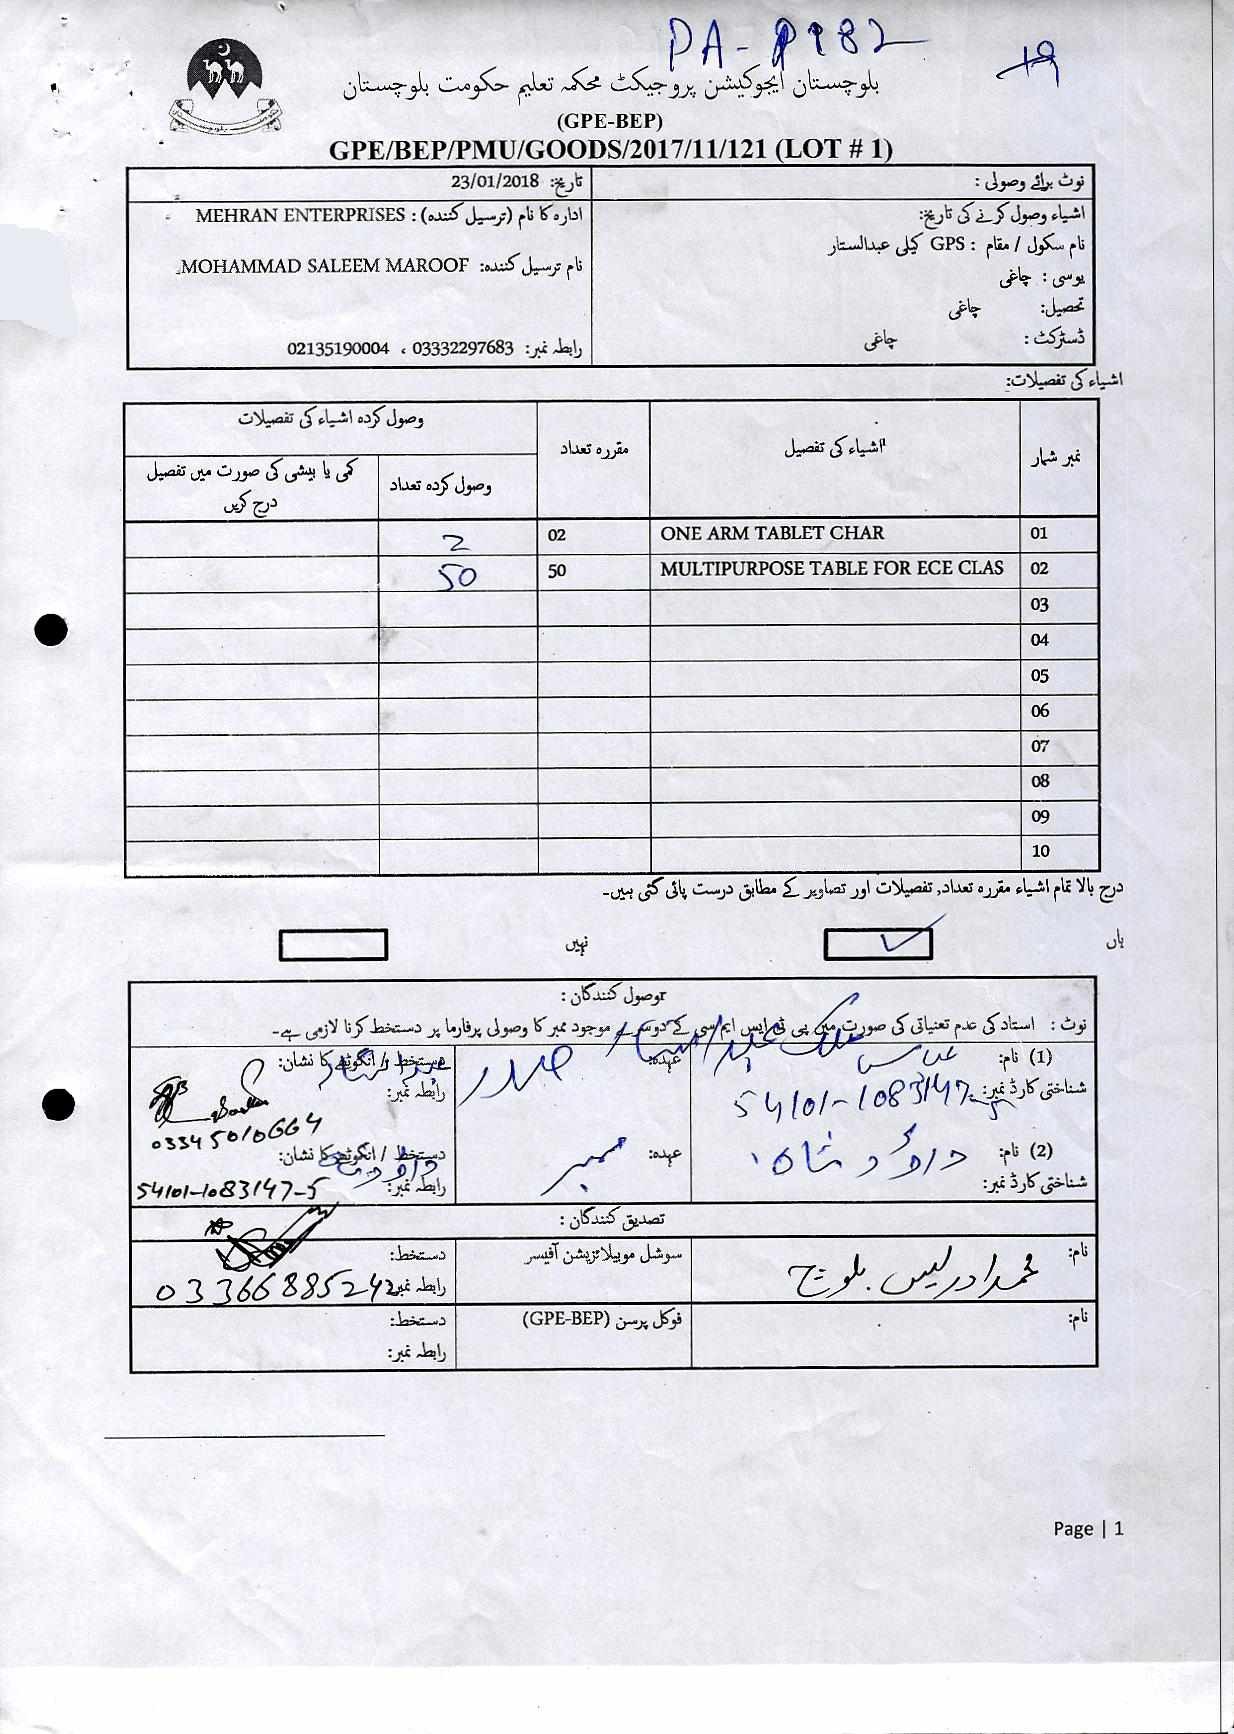 PA-
19
بلوچستان ایجوکیشن پروجیکٹ محکمہ تعلیم حکومت بلوچستان
(GPE-BEP)
GPE/BEP/PMU/GOODS/2017/11/121 (LOT # 1)
نوٹ برائے وصولی :
تاریخ: 23/01/2018
اشیاء وصول کرنے کی تاریخ:
نام سکول / مقام : GPS کیلی عبدالستار
یوسی : چاغی
تحصیل: چاغی
ڈسٹرکٹ : چاغی
ادارہ کا نام (ترسیل کنندہ) : MEHRAN ENTERPRISES
نام ترسیل کنندہ: MOHAMMAD SALEEM MAROOF
رابطہ نمبر: 03332297683 ، 02135190004
اشیاء کی تفصیلات:
نمبر شمار اشیاء کی تفصیل مقررہ تعداد وصول کردہ اشیاء کی تفصیلات
وصول کردہ تعداد کمی یا بیشی کی صورت میں تفصیل درج کریں
01 ONE ARM TABLET CHAR 02 2
02 MULTIPURPOSE TABLE FOR ECE CLAS 50 50
03
04
05
06
07
08
09
10
درج بالا تمام اشیاء مقررہ تعداد, تفصیلات اور تصاویر کے مطابق درست پائی گئی ہیں۔
ہاں نہیں
وصول کنندگان :
نوٹ : استاد کی عدم تعنیاتی کی صورت میں پی ٹی ایس ایم سی کے دوسرے موجود ممبر کا وصولی پرفارما پر دستخط کرنا لازمی ہے۔
(1) نام: عہدہ: صدر دستخط / انگوٹھے کا نشان:
شناختی کارڈ نمبر: 54101-1083147-5 رابطہ نمبر:
03345010664
(2) نام: داؤد شاہ عہدہ: ممبر دستخط / انگوٹھے کا نشان:
شناختی کارڈ نمبر: رابطہ نمبر: 54101-1083147-5
تصدیق کنندگان :
نام: محمد ادریس بلوچ سوشل موبیلائزیشن آفیسر دستخط:
رابطہ نمبر: 03366885242
نام: فوکل پرسن (GPE-BEP) دستخط:
رابطہ نمبر:
Page | 1